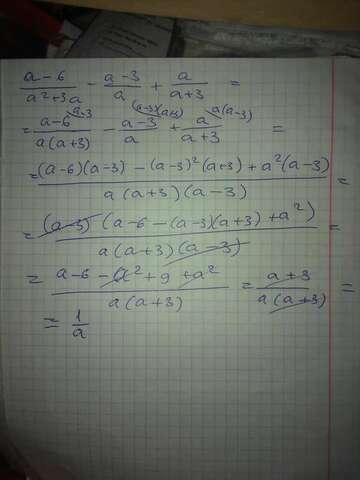 (a-6)/(a²+3a) - (a-3)/a + a/(a+3) =
= (a-6)/(a(a+3)) ^(a-3) - (a-3)/a ^((a-3)(a+3)) + a/(a+3) ^(a(a-3)) =
= ((a-6)(a-3) - (a-3)²(a+3) + a²(a-3))/(a(a+3)(a-3)) =
= ((a-3)(a-6-(a-3)(a+3)+a²))/(a(a+3)(a-3)) =
= (a-6-a²+9+a²)/(a(a+3)) = (a+3)/(a(a+3)) =
= 1/a